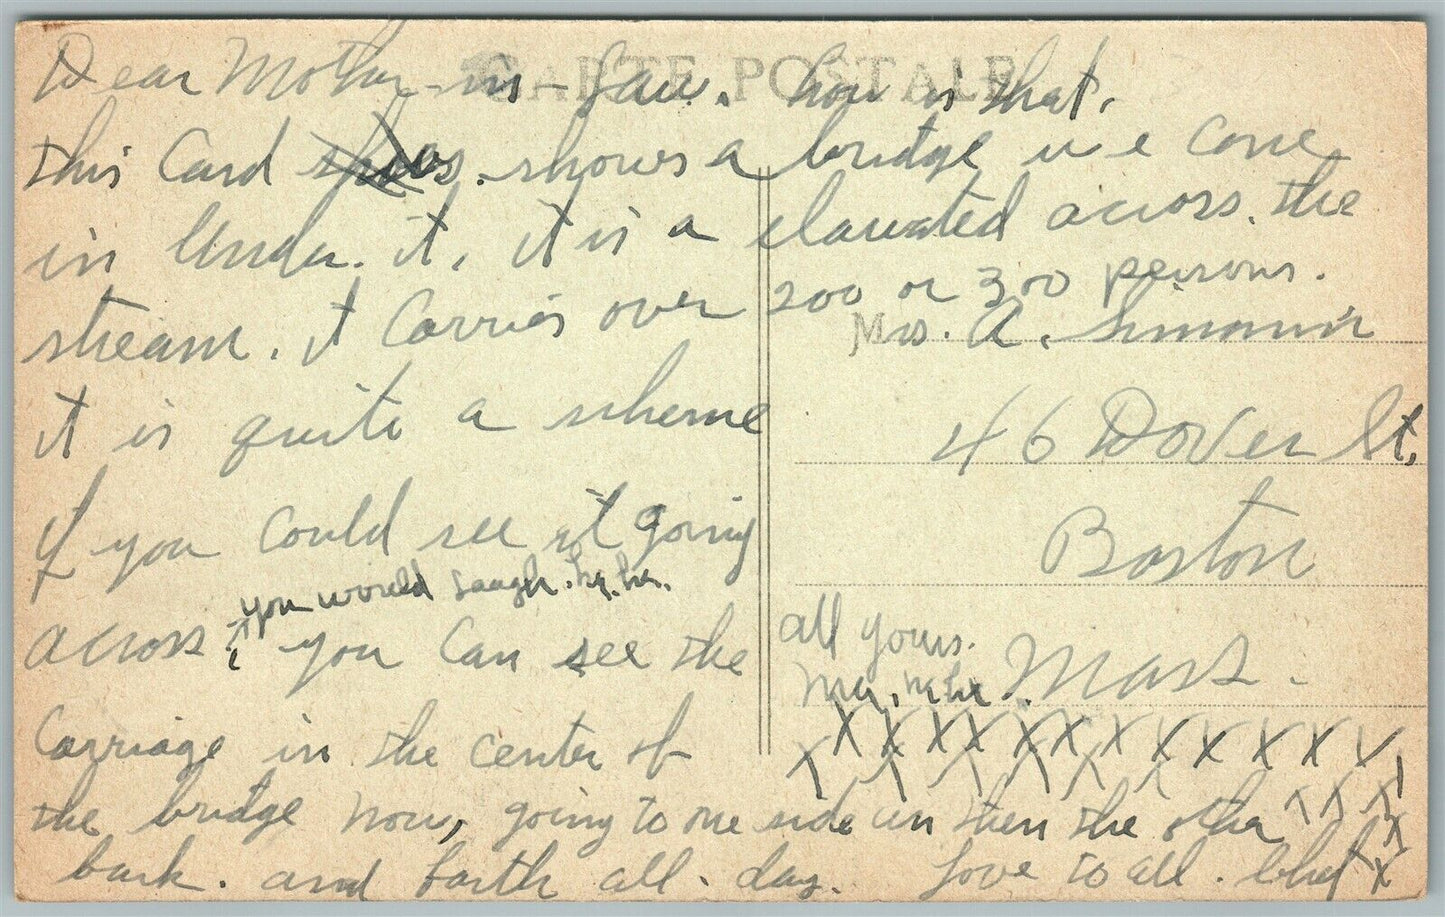 CARTE POSTALE
Dear Mother-in-Law. how is that.
this Card shows. shows a bridge we come
in Under. it, it is a elavated across. the
stream. it Carries over 200 or 300 persons.
it is quite a scheme
if you could see it going
you would laugh. ha. ha.
across you can see the
Carriage in the center of
the bridge now, going to one side un then the other
back. and forth all. day. Love to all.
Mrs. A.
46 Dover St.
Boston
Mass.
all yours.
ha ha.
XXXXXXXXXXXX
XXXXXX
XXX
X
X